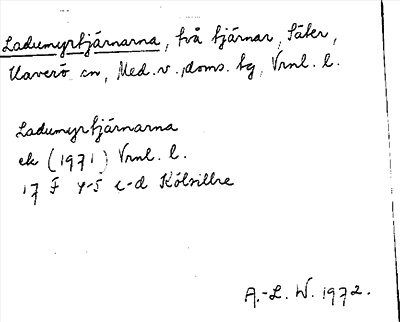 Ladumyrtjärnarna, två tjärnar, Säter,
Haverö sn, Med. v. doms. tg, Vrnl. l.
Ladumyrtjärnarna
ek (1971) Vrnl. l.
17 F 4-5 c-d Kölsillre
A.-L. W. 1972.